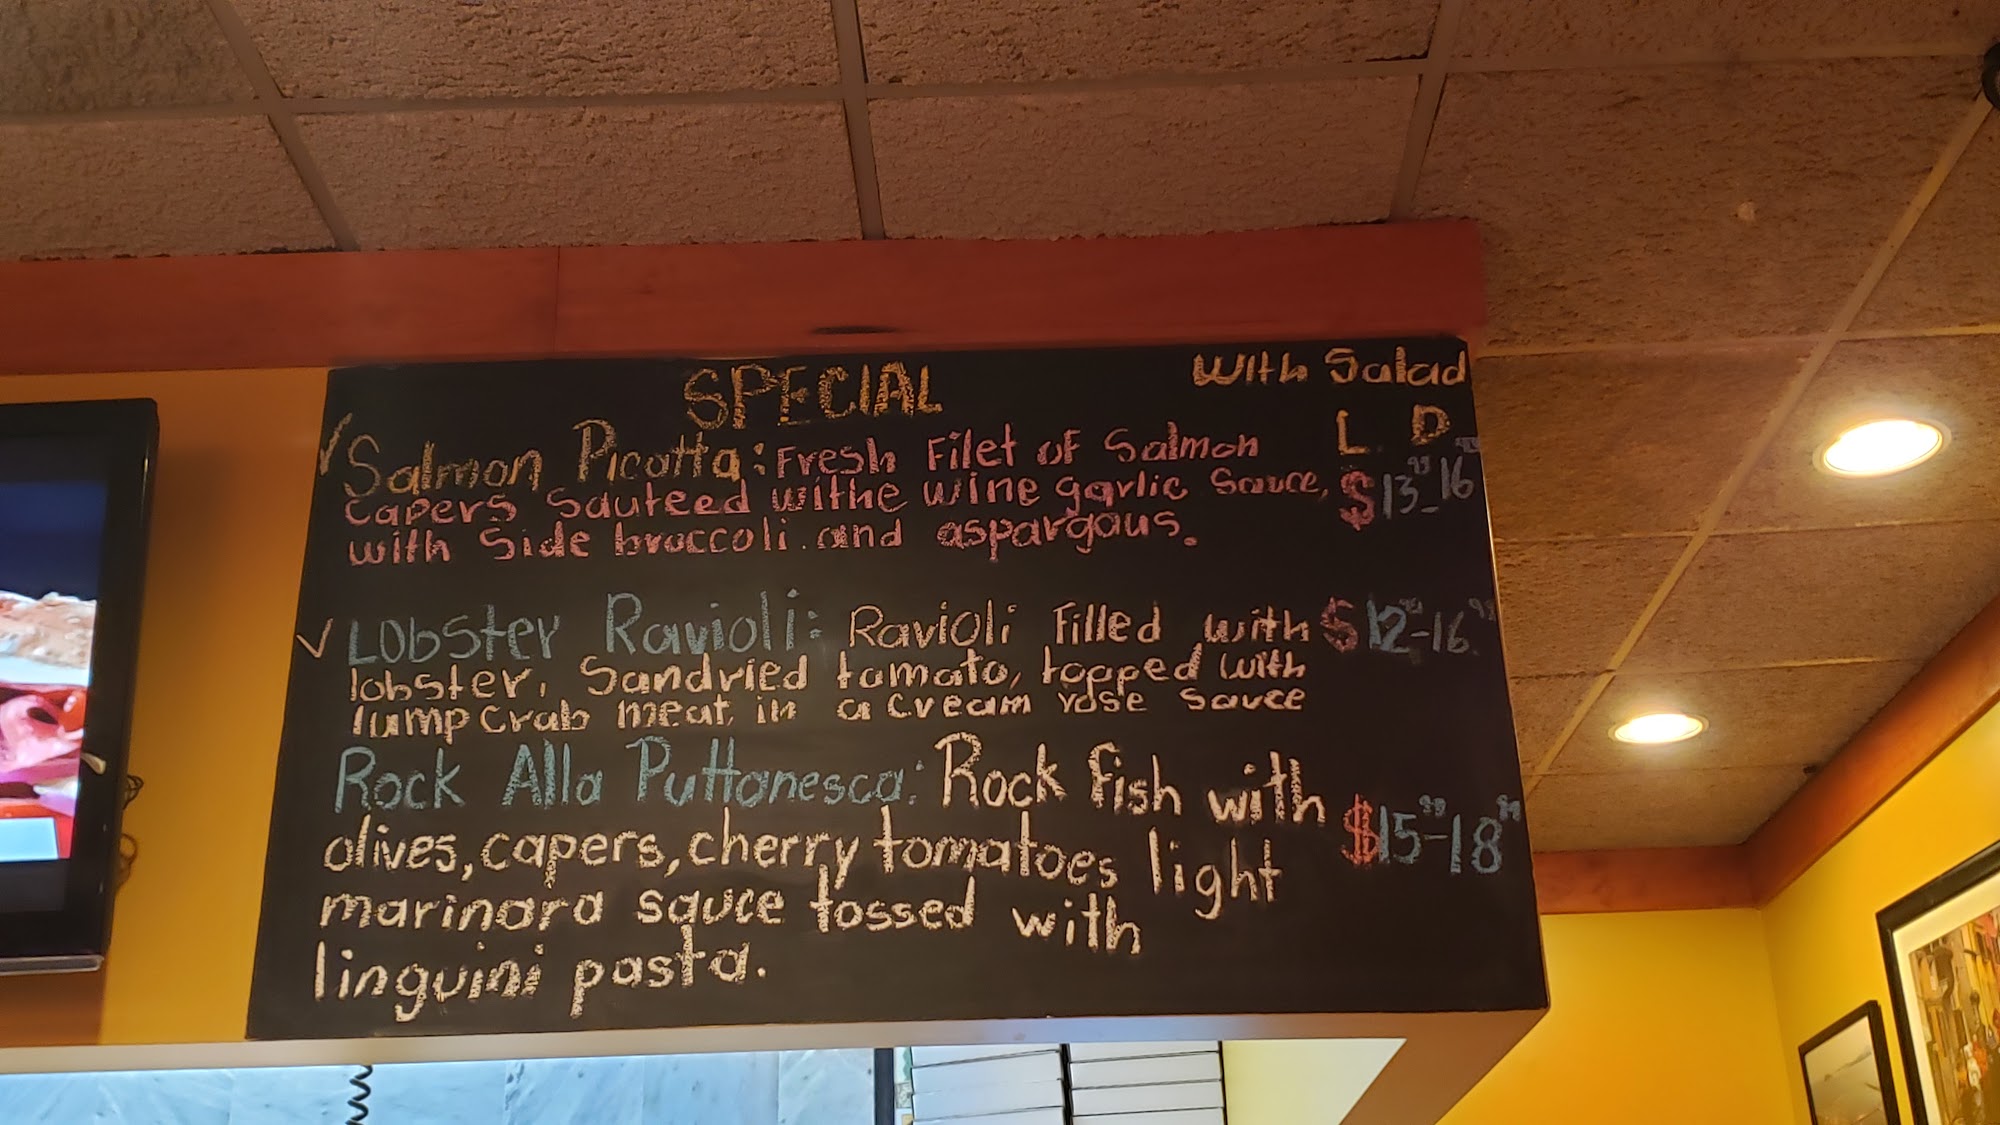 SPECIAL With Salad
L D
Salmon Picatta: Fresh Filet of Salmon
capers Sauteed withe wine garlic Sauce, $13.99-16
with Side broccoli and aspargous.
Lobster Ravioli: Ravioli filled with $12.99-16.99
lobster, Sandried tomato, topped with
lump Crab meat in a cream rose sauce
Rock Alla Puttanesca: Rock fish with
olives, capers, cherry tomatoes light $15.99-18.99
marinara sauce tossed with
linguini pasta.